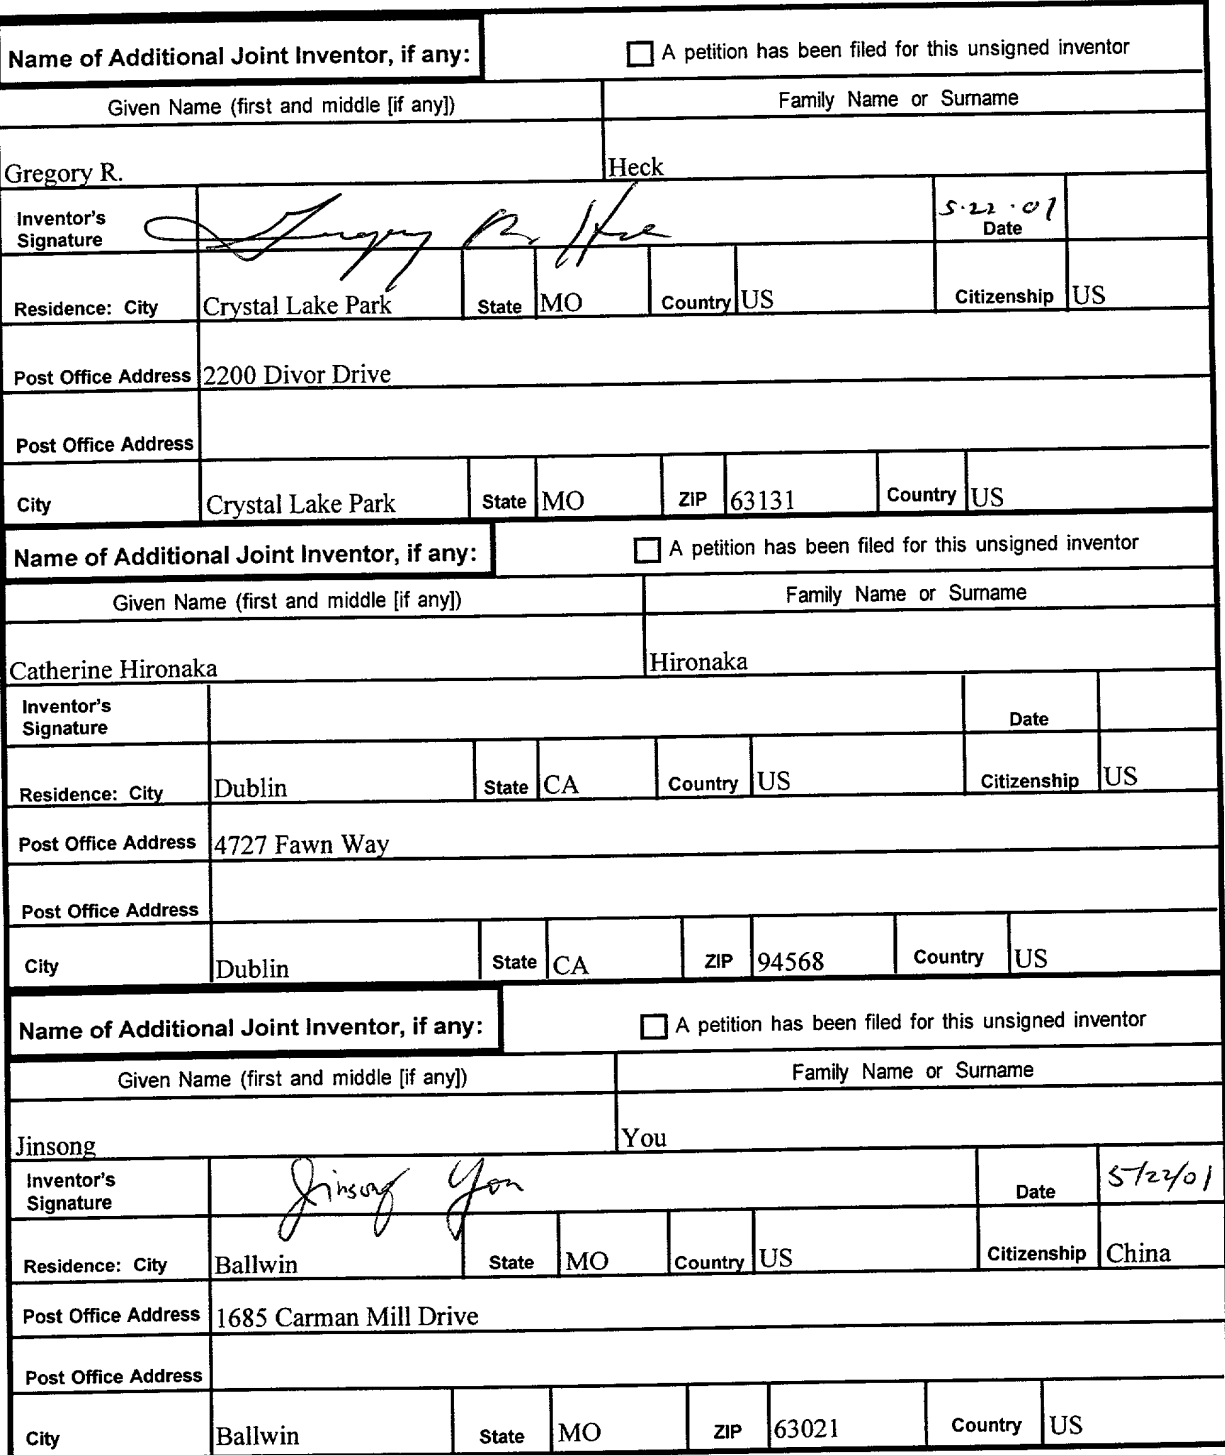 Name of Additional Joint Inventor, if any: A petition has been filed for this unsigned inventor
Given Name (first and middle [if any]) Family Name or Surname
Gregory R. Heck
Inventor's Signature Gregory R. Heck 5·22·01 Date
Residence: City Crystal Lake Park State MO Country US Citizenship US
Post Office Address 2200 Divor Drive
Post Office Address
City Crystal Lake Park State MO ZIP 63131 Country US
Name of Additional Joint Inventor, if any: A petition has been filed for this unsigned inventor
Given Name (first and middle [if any]) Family Name or Surname
Catherine Hironaka Hironaka
Inventor's Signature Date
Residence: City Dublin State CA Country US Citizenship US
Post Office Address 4727 Fawn Way
Post Office Address
City Dublin State CA ZIP 94568 Country US
Name of Additional Joint Inventor, if any: A petition has been filed for this unsigned inventor
Given Name (first and middle [if any]) Family Name or Surname
Jinsong You
Inventor's Signature Jinsong You Date 5/22/01
Residence: City Ballwin State MO Country US Citizenship China
Post Office Address 1685 Carman Mill Drive
Post Office Address
City Ballwin State MO ZIP 63021 Country US